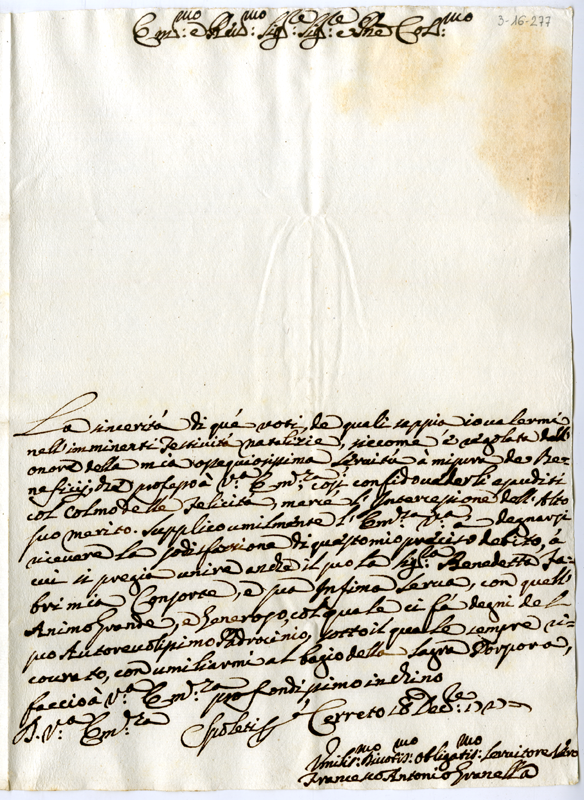 3-16-277
Em.mo e Rev.mo Sig.re Sig.re e Pne Col.mo
La sincerità di què voti, de quali soppio io valermi
nell'imminenti Festività natalizie, siccome è regolata dall'
onore della mia ossequiosissima servitù à misura de Be=
neficij, che professo à V.a Em.za; così confido vederli esauditi
col colmo delle Felicità, mercè l'Intercessione dell'Alto
suo merito. Supplico umilmente l'Em.za V.a à degnarsi
ricevere la sodisfazione di questo mio preciso debito, à
cui si pregia unire anche il suo la Sig.ra Benedetta Fa=
bri mia Consorte, e sua Infima serva, con quell'
Animo Grande, e Generoso, col quale ci fà degni del
suo Autorevolissimo Padrocinio, sotto il quale sempre ri=
courato, con umiliarmi al bagio della Sagra Porpora,
faccio à V.a Em.za profondissimo inchino
D. V.a Em.za
Spoleti Cerreto 18 Dec.re
Umilis.mo Divotis.mo Obligatis.mo Servitore Vero
Francesco Antonio Granella